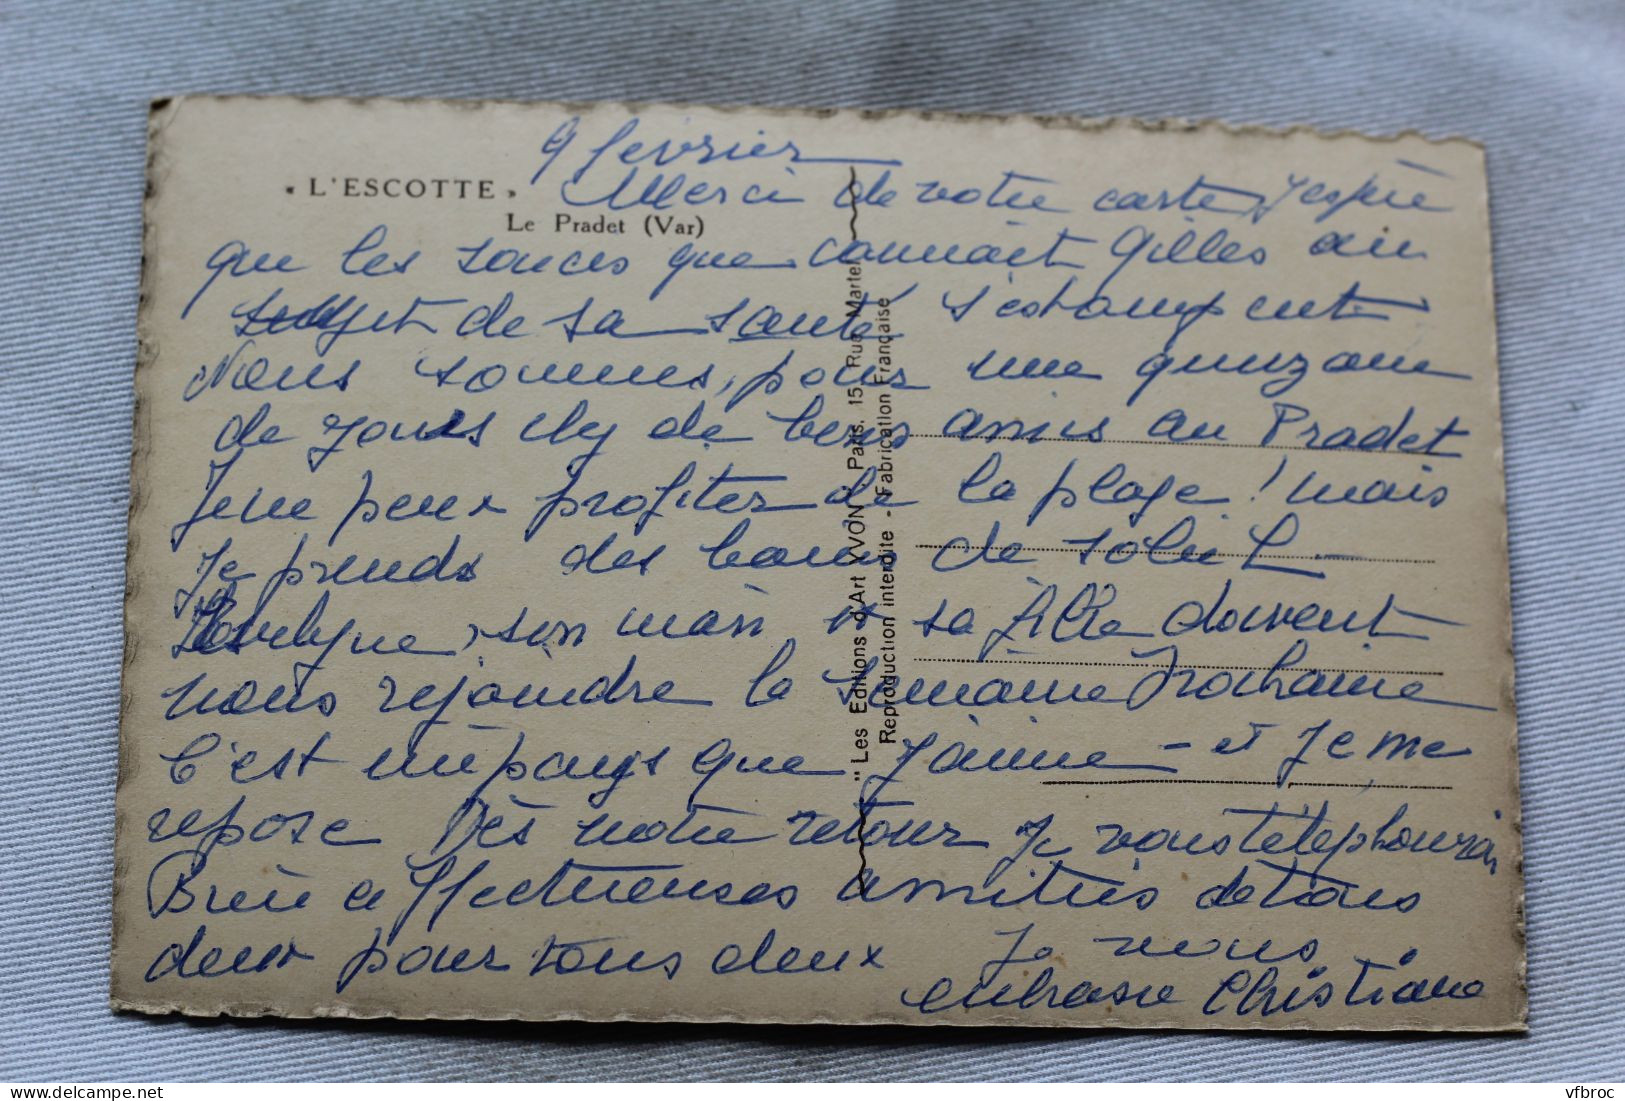 « L'ESCOTTE »
Le Pradet (Var)
9 février
Merci de votre carte, J'espère
que les soucis que connait Gilles au
sujet de sa santé s'estompent
Nous sommes, pour une quinzaine
de jours chez de bons amis au Pradet
Je ne peux profiter de la plage ! mais
Je prends des bains de soleil
Evelyne, son mari et sa fille doivent
nous rejoindre la semaine prochaine
C'est un pays que j'aime - et Je me
repose Dès notre retour Je vous téléphonerai
Affectueuses amitiés de tous
deux pour tous deux Je vous
embrasse Christiane
"Les Editions d'Art YVON" Paris. 15, Rue Martel
Reproduction interdite - Fabrication Française
vfbroc
delcampe.net